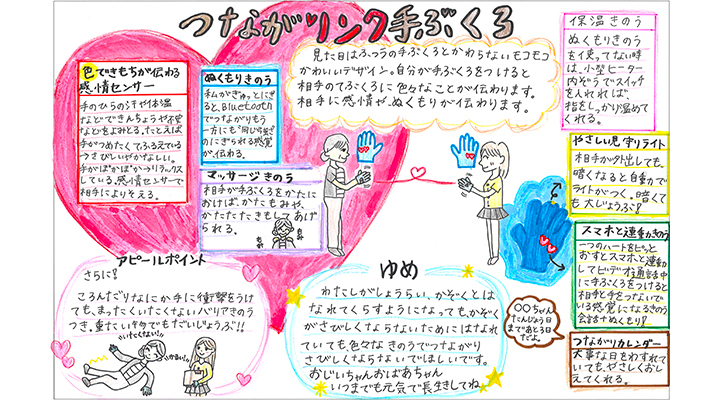 つながリンク手ぶくろ
見た目はふつうの手ぶくろとかわらないモコモコ
かわいいデザイン。自分が手ぶくろをつけると
相手のてぶくろに色々なことが伝わります。
相手に感情や、ぬくもりが伝わります。
色できもちが伝わる
感情センサー
手のひらの汗や体温
などできんちょうや不安
などをよみとる。たとえば
手がつめたくてふるえている
つさびしいかかなしい。
手がぽかぽかつリラックス
している。感情センサーで
相手によりそえる。
ぬくもりきのう
私がぎゅっとにぎ
ると、Bluetooth
でつながりもう
一方にも"同じ強さ"
のにぎられる感覚
が伝わる。
マッサージきのう
相手が手ぶくろをかたに
おけば、かたもみや、
かたたたきもしてあげ
られる。
もみ
もみ
保温きのう
ぬくもりきのう
を使ってない時
は、小型ヒーター
内ぞうでスイッチ
を入れれば、
指をしっかり温めて
くれる。
やさしい見守りライト
相手が外出しても。
暗くなると自動で
ライトがつく。暗くて
も大じょうぶ!
スマホと連動きのう
二つのハートをピッと
おすとスマホと連動
してビデオ通話中
に手ぶくろをつけると
相手と手をつないで
いる感覚になるきのう
会話+ぬくもり!
つながりカレンダー
大事な日をわすれてい
ても、やさしくおし
えてくれる。
アピールポイント
さらに!
ころんだりなにか手に衝撃をうけ
ても、まったくいたくないバリアきのう
つき。重たい物でもだいじょうぶ!!
いたくない!
ゆめ
わたしがしょうらい、かぞくとは
なれてくらすようになっても、かぞく
がさびしくならないためにはなれ
ていても色々なきのうでつながり
さびしくならないでほしいです。
おじいちゃんおばあちゃん
いつまでも元気で長生きしてね。
〇〇ちゃん
たんじょう日
まであと3日
だよ。